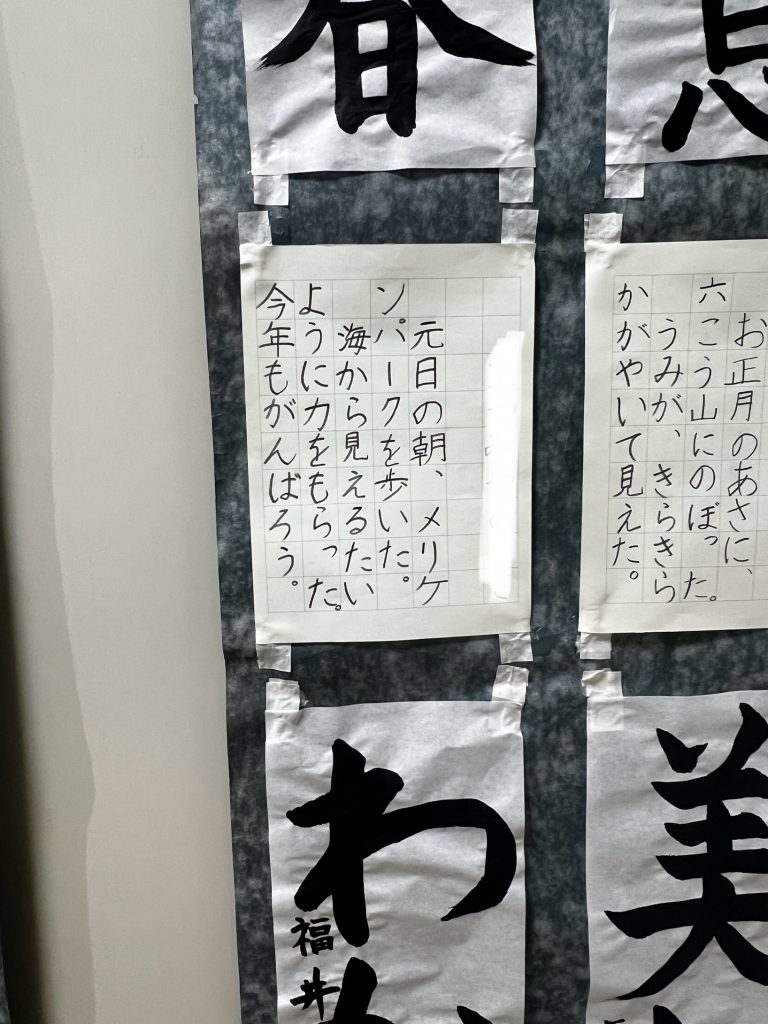 春
元日の朝、メリケ
ンパークを歩いた。
海から見えるたい
ように力をもらった。
今年もがんばろう。
お正月のあさに、
六こう山にのぼった。
うみが、きらきら
かがやいて見えた。
美
わ
福井